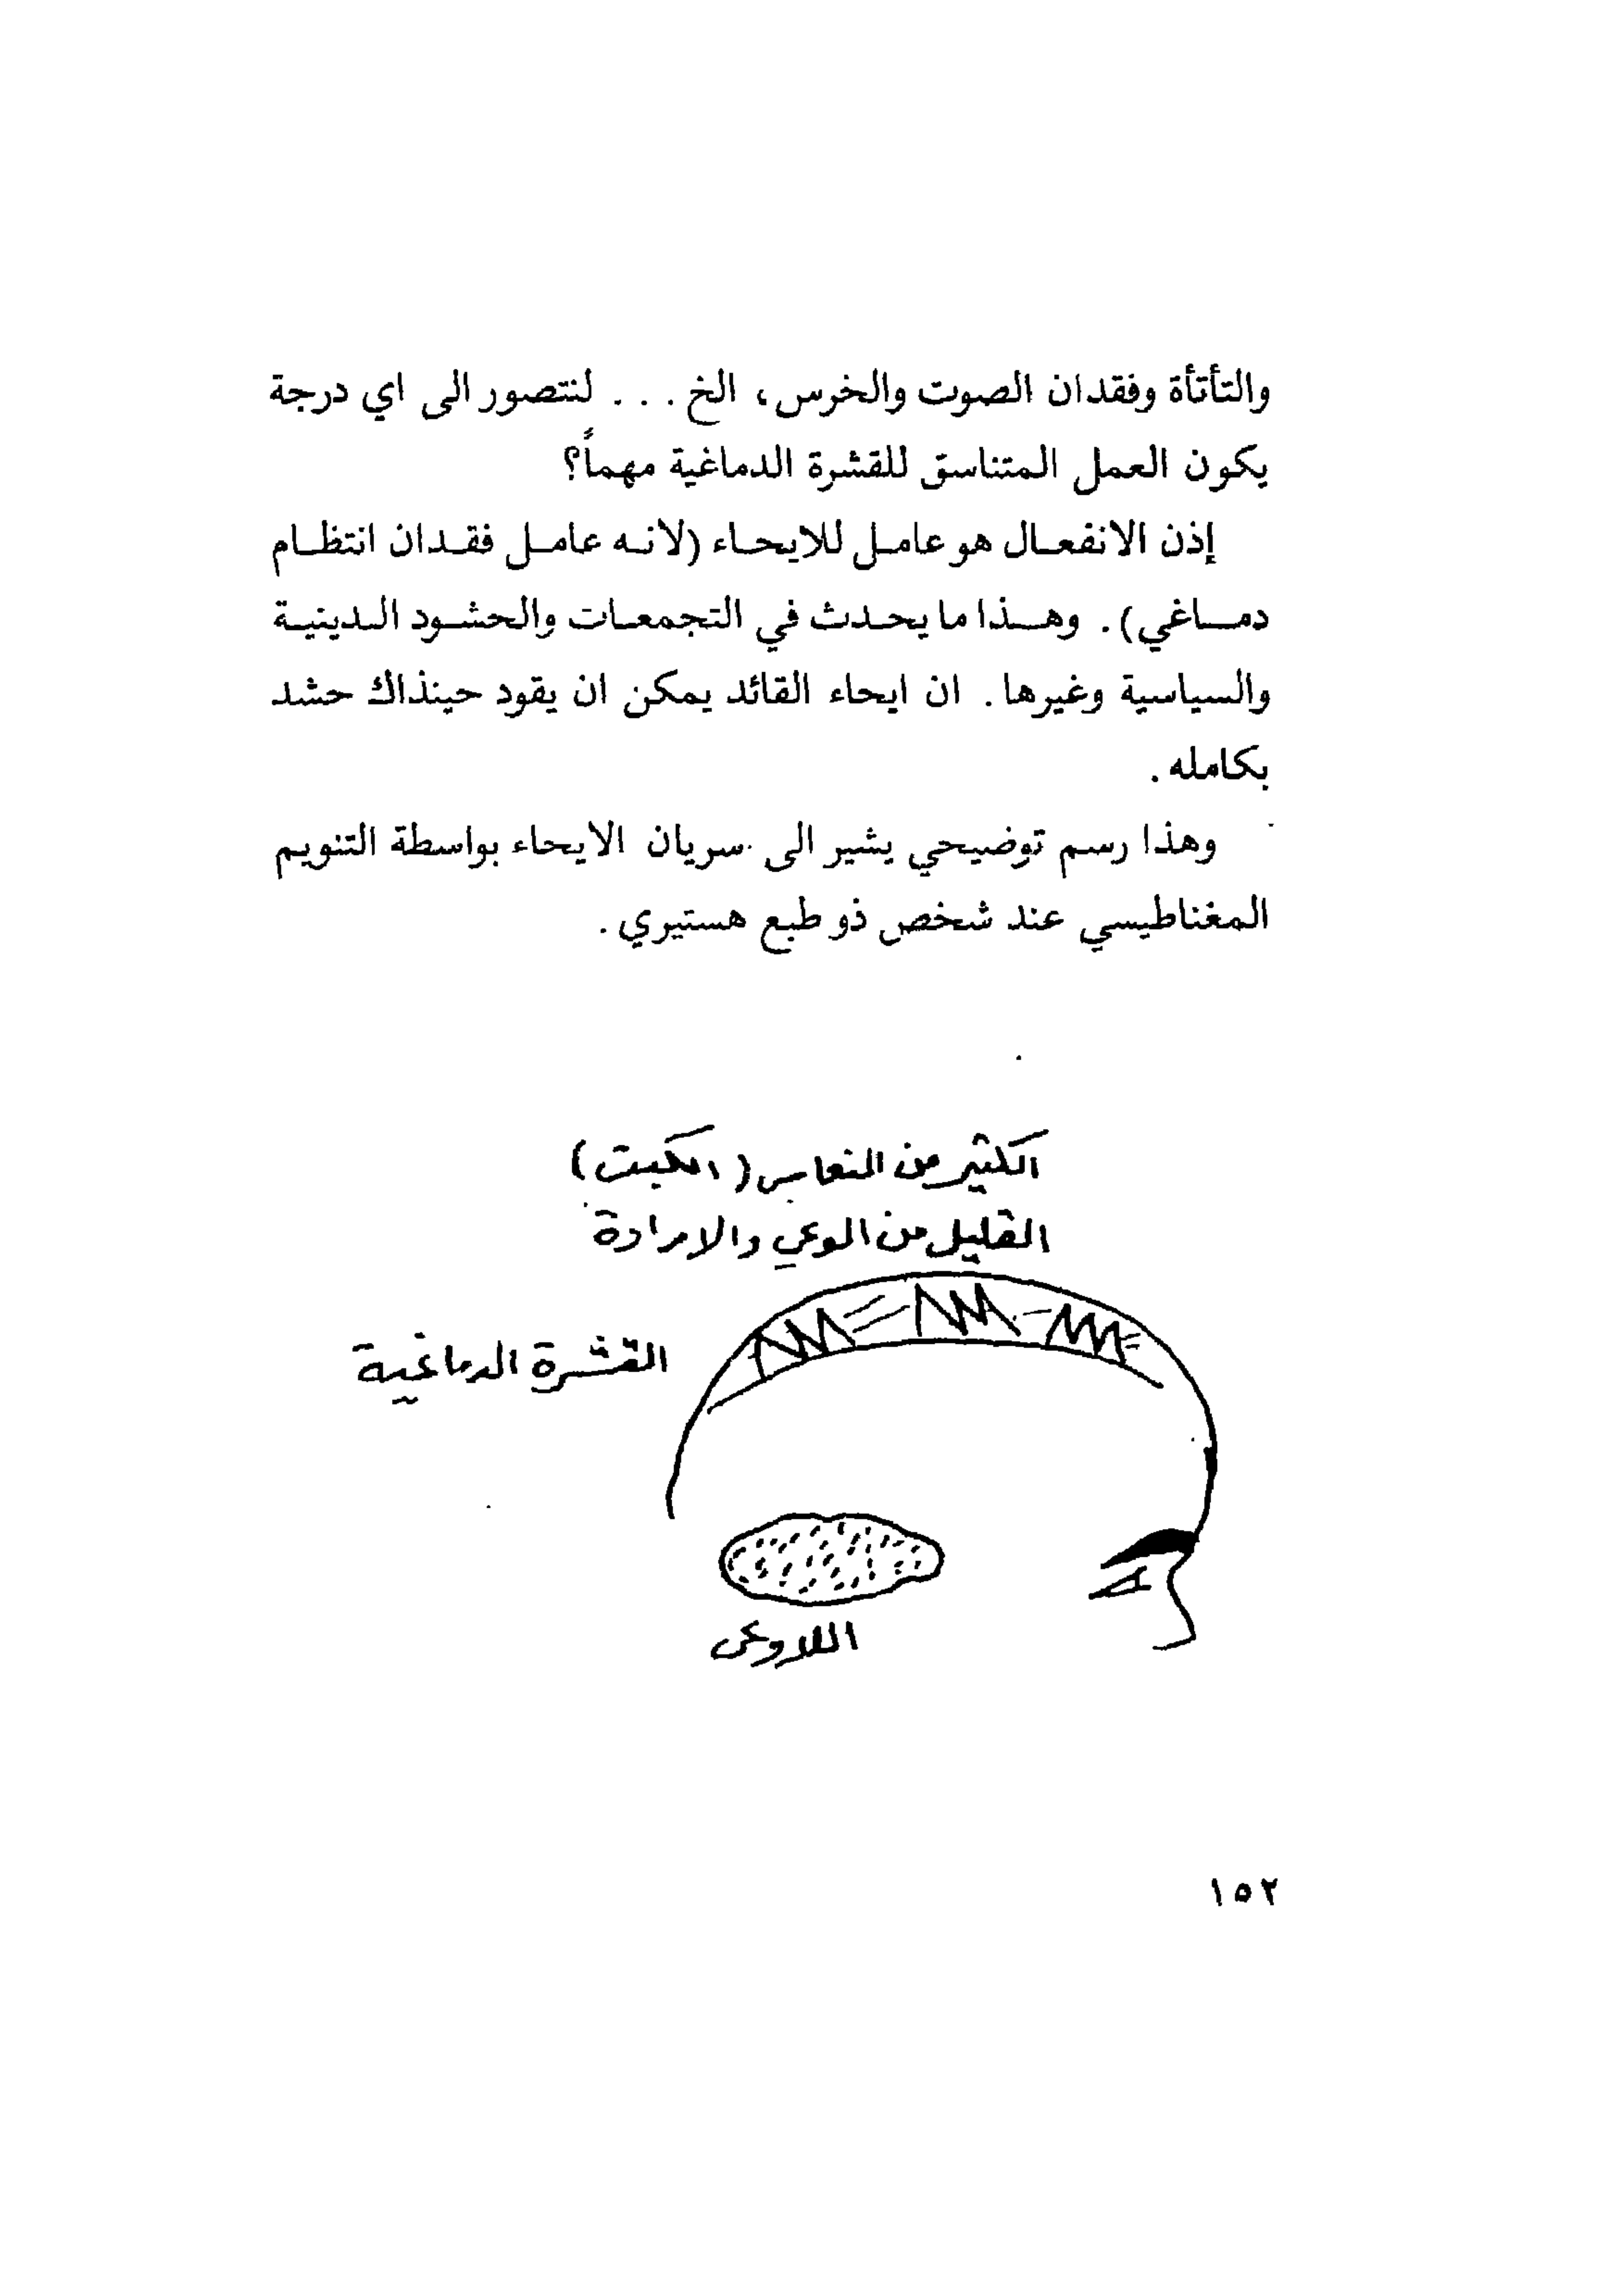 والتأتأة وفقدان الصوت والخرس، الخ . . . لنتصور الى اي درجة
يكون العمل المتناسق للقشرة الدماغية مهماً؟
إذن الانفعال هو عامل للايحاء (لانه عامل فقدان انتظام
دماغي). وهذا ما يحدث في التجمعات والحشود الدينية
والسياسية وغيرها. ان ايحاء القائد يمكن ان يقود حينذاك حشد
بكامله.
وهذا رسم توضيحي يشير الى سريان الايحاء بواسطة التنويم
المغناطيسي عند شخص ذو طبع هستيري.
الكثير من النعاس (الكبت)
القليل من الوعي والارادة
القشرة الدماغية
اللاوعي
١٥٢